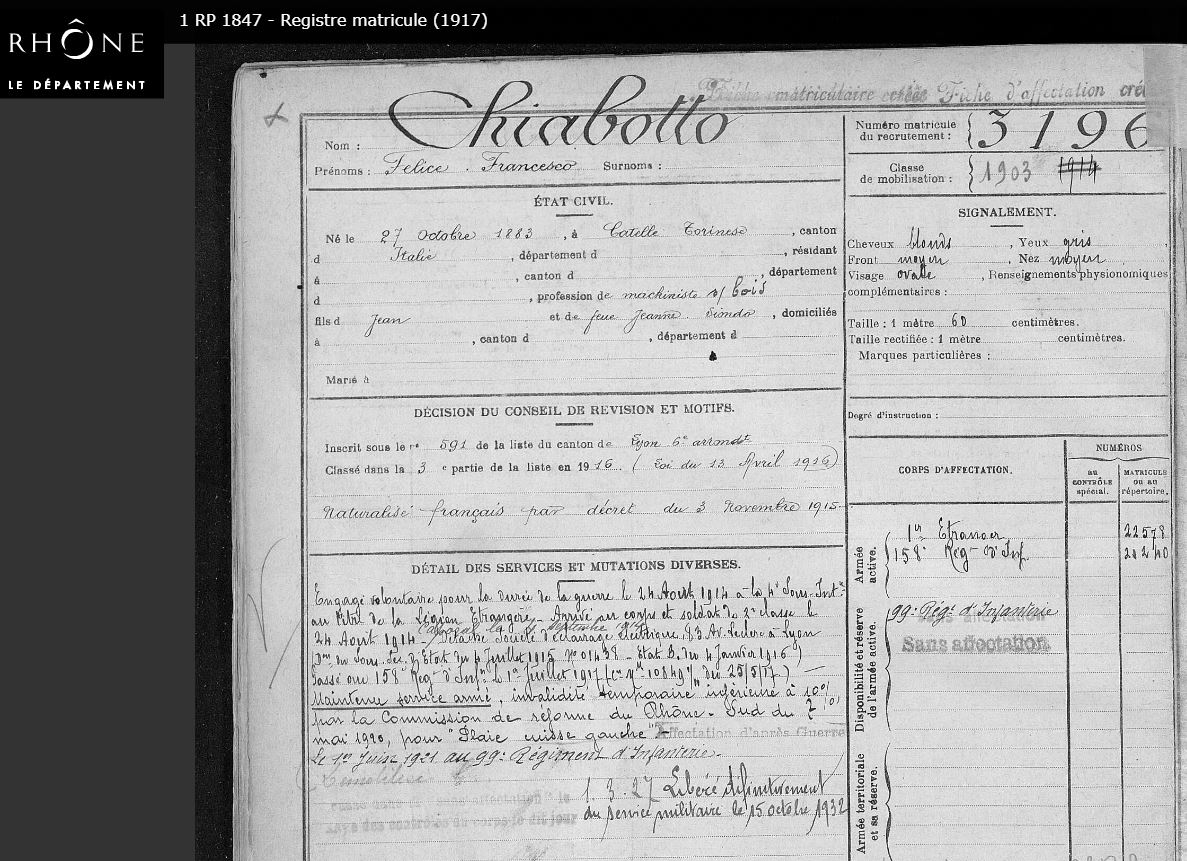 RHÔNE
LE DÉPARTEMENT
1 RP 1847 - Registre matricule (1917)
Fiche matriculaire créée Fiche d'affectation cré
Nom : Chiabotto
Prénoms : Felice . Francesco Surnoms :
ÉTAT CIVIL.
Né le 27 octobre 1883 , à Catelle Torinese , canton
d Italie , département d , résidant
à , canton d , département
d , profession de machiniste s/ bois
fils d Jean et de feue Jeanne , domiciliés
à , canton d , département d
Marié à
DÉCISION DU CONSEIL DE REVISION ET MOTIFS.
Inscrit sous le n° 591 de la liste du canton de Lyon 6e arrondt
Classé dans la 3 e partie de la liste en 1916 (Loi du 13 Avril 1916)
Naturalisé français par décret du 3 Novembre 1915
DÉTAIL DES SERVICES ET MUTATIONS DIVERSES.
Engagé volontaire pour la durée de la guerre le 24 Août 1914 à la 4e Sous-Int.ce
au titre de la Légion Etrangère - Arrivé au corps et soldat de 2e classe le
24 Août 1914 - Détaché Société d'éclairage électrique, 83 Av. Leclerc à Lyon
Don du Sous. Sec. d'Etat du 4 Juillet 1915 No 01438 - Etat B. du 4 Janvier 1916)
Passé au 158e Rég.nt d'Inf.ie le 1er Juillet 1917 (cre no 10849 du 25/5/17)
Maintenu service armé, invalidité temporaire inférieure à 10%
par la Commission de réforme du Rhône-Sud du 7
mai 1920, pour "Plaie cuisse gauche" Affectation d'après Guerre
Le 1er Juin 1921 au 99e Régiment d'Infanterie.
1. 3. 27 Libéré définitivement
du service militaire le 15 octobre 1932
Numéro matricule
du recrutement : 3196
Classe
de mobilisation : 1903 1914
SIGNALEMENT.
Cheveux blonds , Yeux gris
Front moyen , Nez moyen
Visage ovale , Renseignements physionomiques
complémentaires :
Taille : 1 mètre 60 centimètres.
Taille rectifiée : 1 mètre centimètres.
Marques particulières :
Degré d'instruction :
CORPS D'AFFECTATION.
NUMÉROS
au
CONTRÔLE
spécial.
MATRICULE
ou au
répertoire.
Armée
active.
1er Etranger 22578
158e Rég.nt d'Inf.
Disponibilité et réserve
de l'armée active.
99e Rég.t d'Infanterie
Sans affectation
Sans affectation
Armée territoriale
et sa réserve.